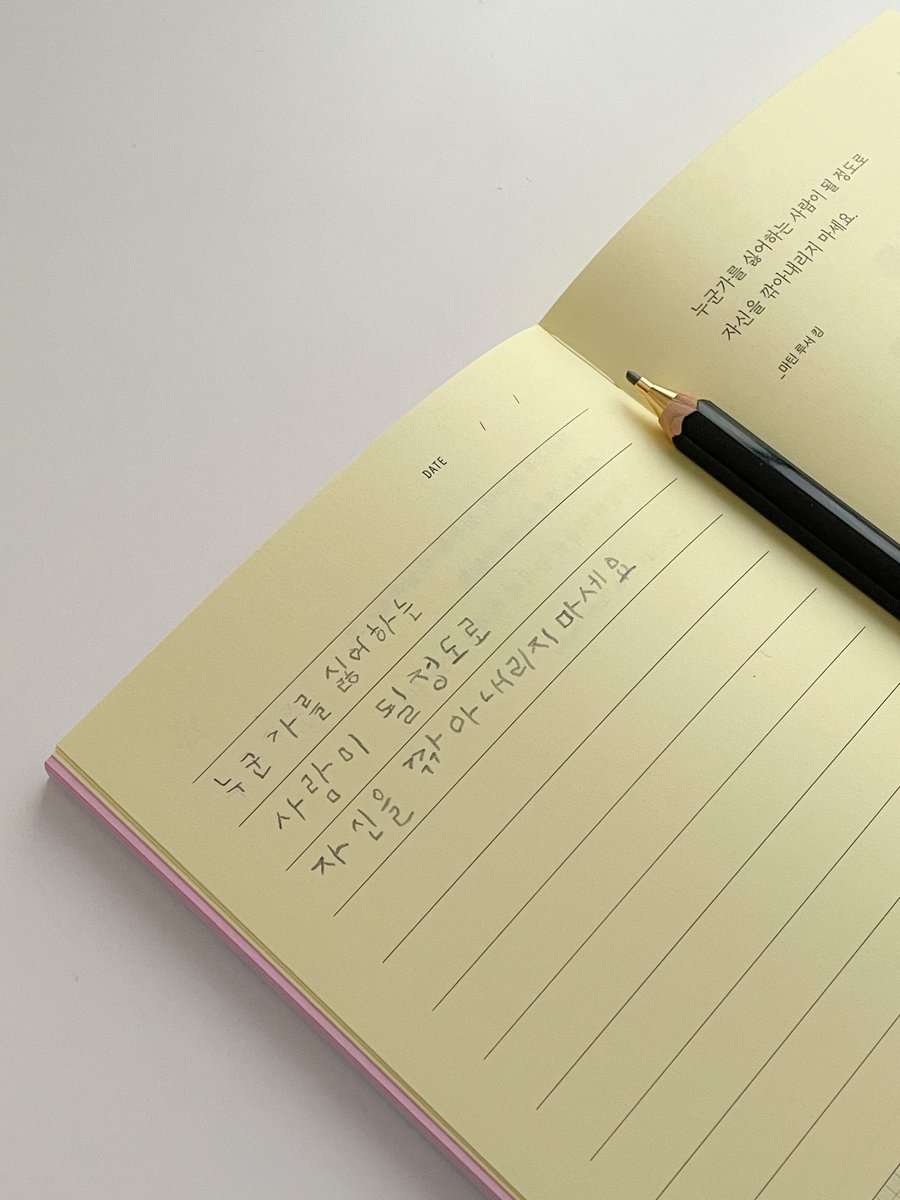 누군가를 싫어하는 사람이 될 정도로
자신을 깎아내리지 마세요.
_마틴 루서 킹
DATE / /
누군가를 싫어하는
사람이 될 정도로
자신을 깎아내리지 마세요